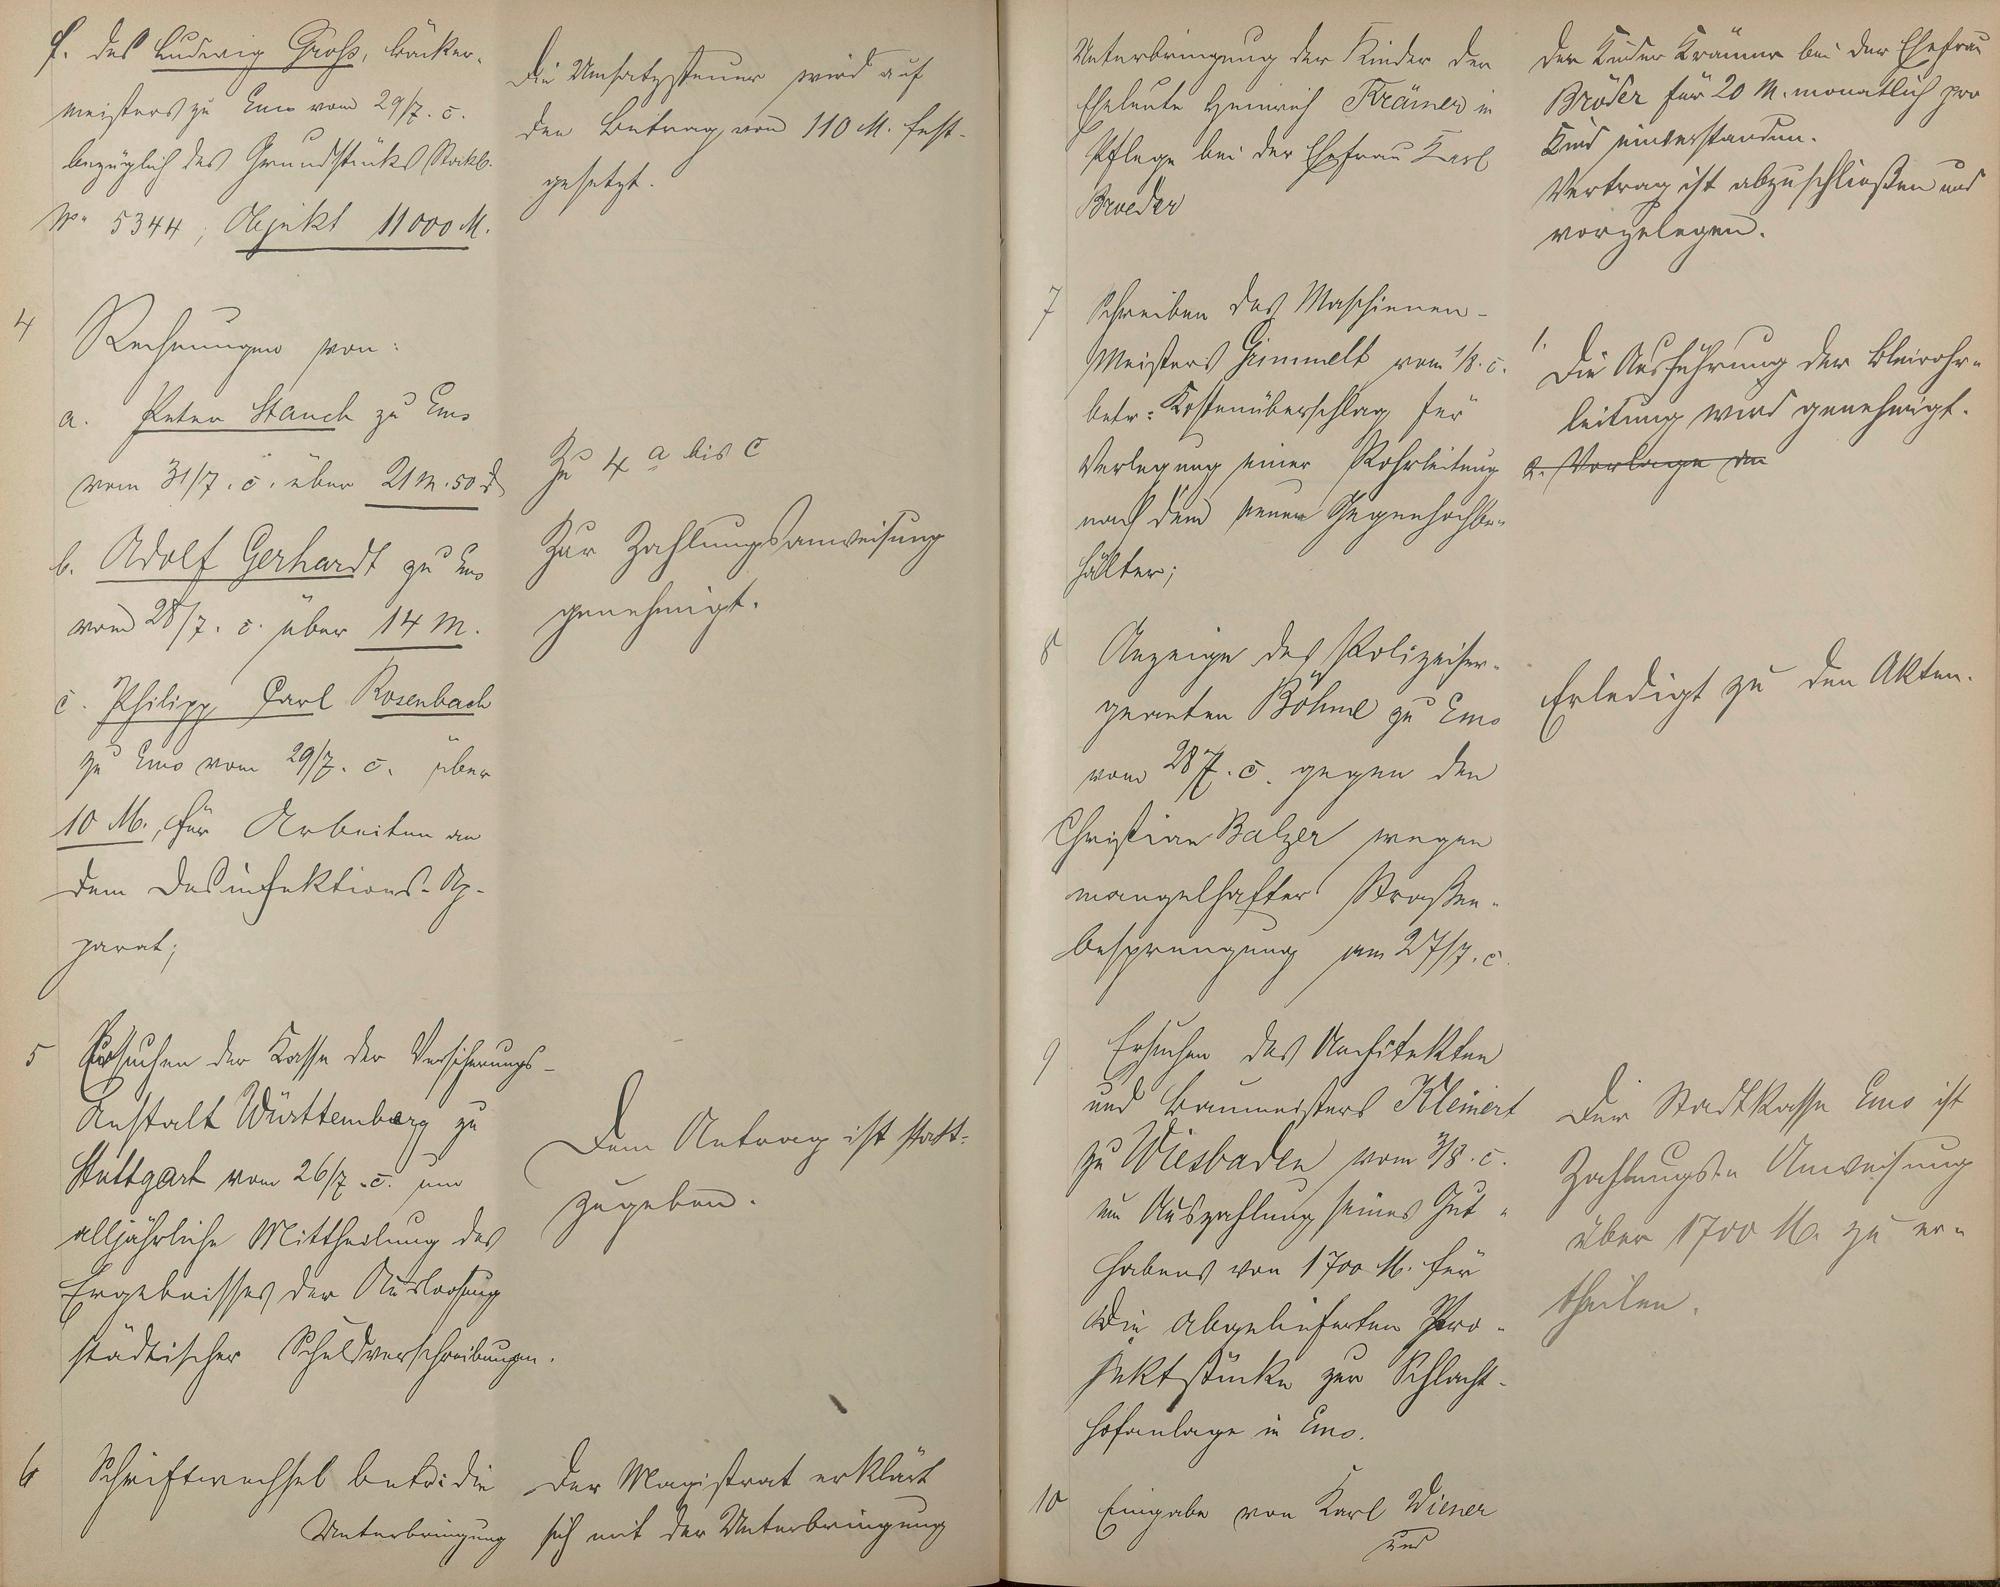 f. des Ludwig Groß, Bäcker-
meisters zu Ems vom 29/7. c.
bezüglich des Grundstücks Stockb.
No 5344, Objekt 11000 M.
Die Umsatzsteuer wird auf
den Betrag von 110 M. fest-
gesetzt.
4
Rechnungen von:
a. Peter Stauch zu Ems
vom 31/7. c. über 21 M. 50 d
b. Adolf Gerhardt zu Ems
vom 28/7. c. über 14 M.
c. Philipp Carl Rosenbach
zu Ems vom 29/7. c. über
10 M., für Arbeiten an
dem Desinfektions-Ap-
parat;
Zu 4 a bis c
Zur Zahlungsanweisung
genehmigt.
5 Ersuchen der Kasse der Versicherungs-
Anstalt Württemberg zu
Stuttgart vom 26/7. c. um
alljährliche Mittheilung des
Ergebnisses der Ausloosung
städtischer Schuldverschreibungen.
Dem Antrag ist statt-
zugeben.
6 Schriftwechsel betr: die
Unterbringung
Der Magistrat erklärt
sich mit der Unterbringung
Unterbringung der Kinder der
Eheleute Heinrich Krämer in
Pflege bei der Ehefrau Karl
Broeder
der Kinder Krämer bei der Ehefrau
Bröder für 20 M. monatlich pro
Kind einverstanden.
Vertrag ist abzuschließen und
vorzulegen.
7 Schreiben des Maschinen-
Meisters Gimmelt vom 1/8. c.
betr: Kostenüberschlag für
Verlegung einer Rohrleitung
nach dem neuen Gegenhochbe-
hälter;
1.
Die Ausführung der Bleirohr-
leitung wird genehmigt.
2. Vorlage der
8 Anzeige des Polizeiser-
geanten Böhme zu Ems
vom 28/7. c. gegen den
Christian Balzer wegen
mangelhafter Straßen-
besprengung am 27/7. c.
Erledigt zu den Akten.
9 Ersuchen des Architekten
und Baumeisters Kleinert
zu Wiesbaden vom 3/8. c.
um Auszahlung seines Gut-
habens von 1700 M. für
die abgelieferten Pro-
jektstücke zur Schlacht-
hofanlage in Ems.
Der Stadtkasse Ems ist
Zahlungs-Anweisung
über 1700 M. zu er-
theilen.
10 Eingabe von Karl Wiener
und